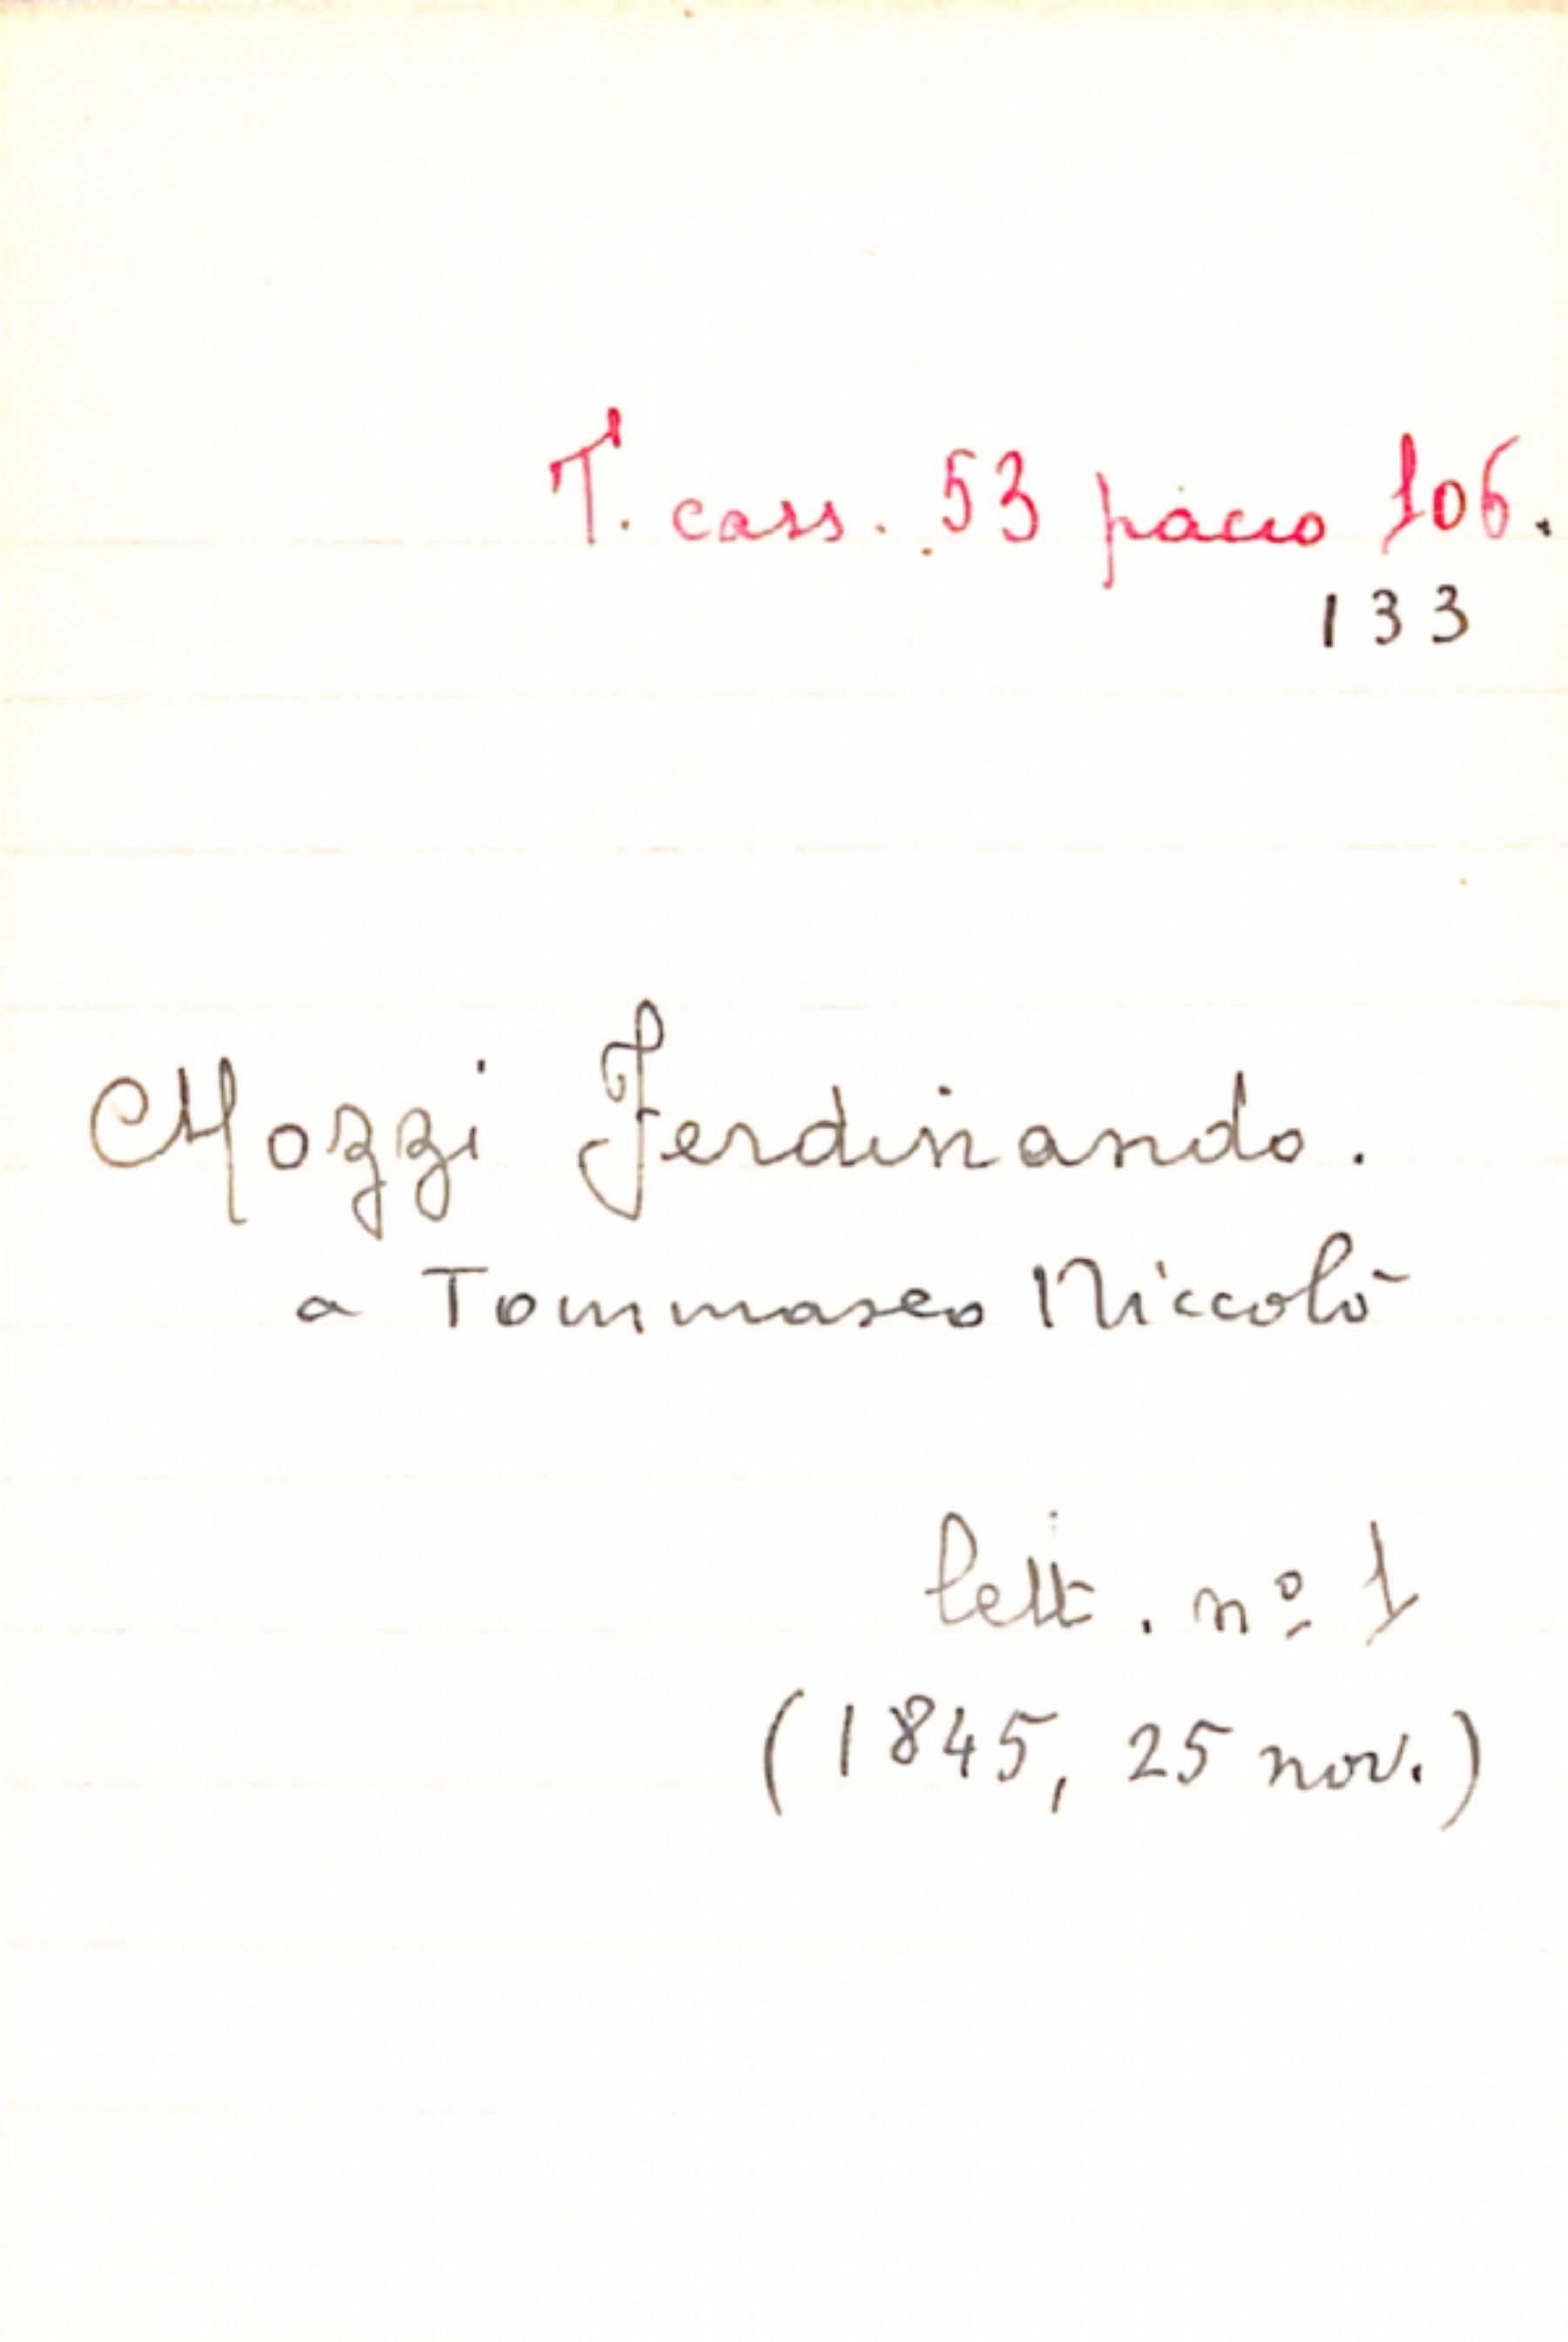 T. cass. 53 pacco 106.
133
Mozzi Ferdinando.
a Tommaseo Niccolò
lett. nº 1
(1845, 25 nov.)